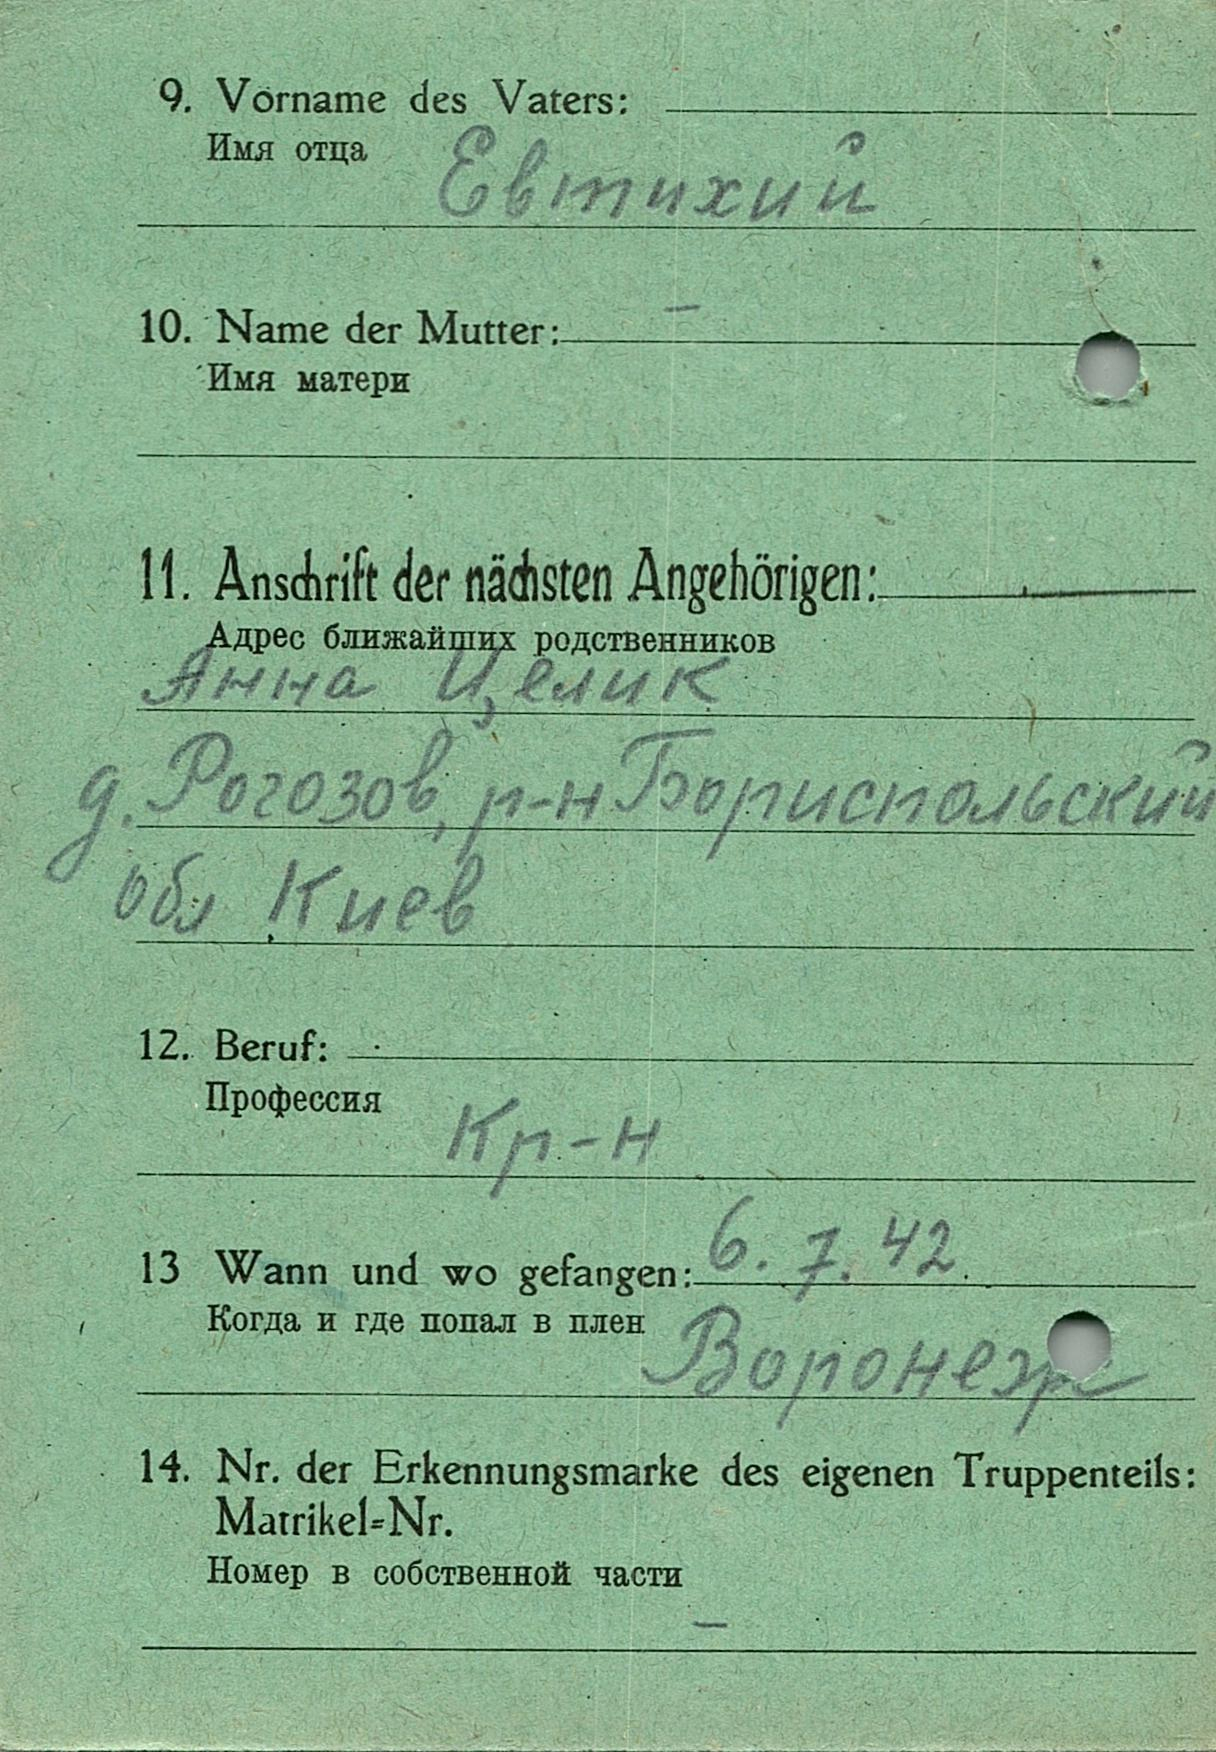 9. Vorname des Vaters:
Имя отца
Евтихий
10. Name der Mutter: –
Имя матери
11. Anschrift der nächsten Angehörigen:
Адрес ближайших родственников
Анна Целик
д. Рогозов, р-н Бориспольский
обл Киев
12. Beruf:
Профессия
Кр-н
13 Wann und wo gefangen: 6. 7. 42
Когда и где попал в плен
Воронеж
14. Nr. der Erkennungsmarke des eigenen Truppenteils:
Matrikel=Nr.
Номер в собственной части
–